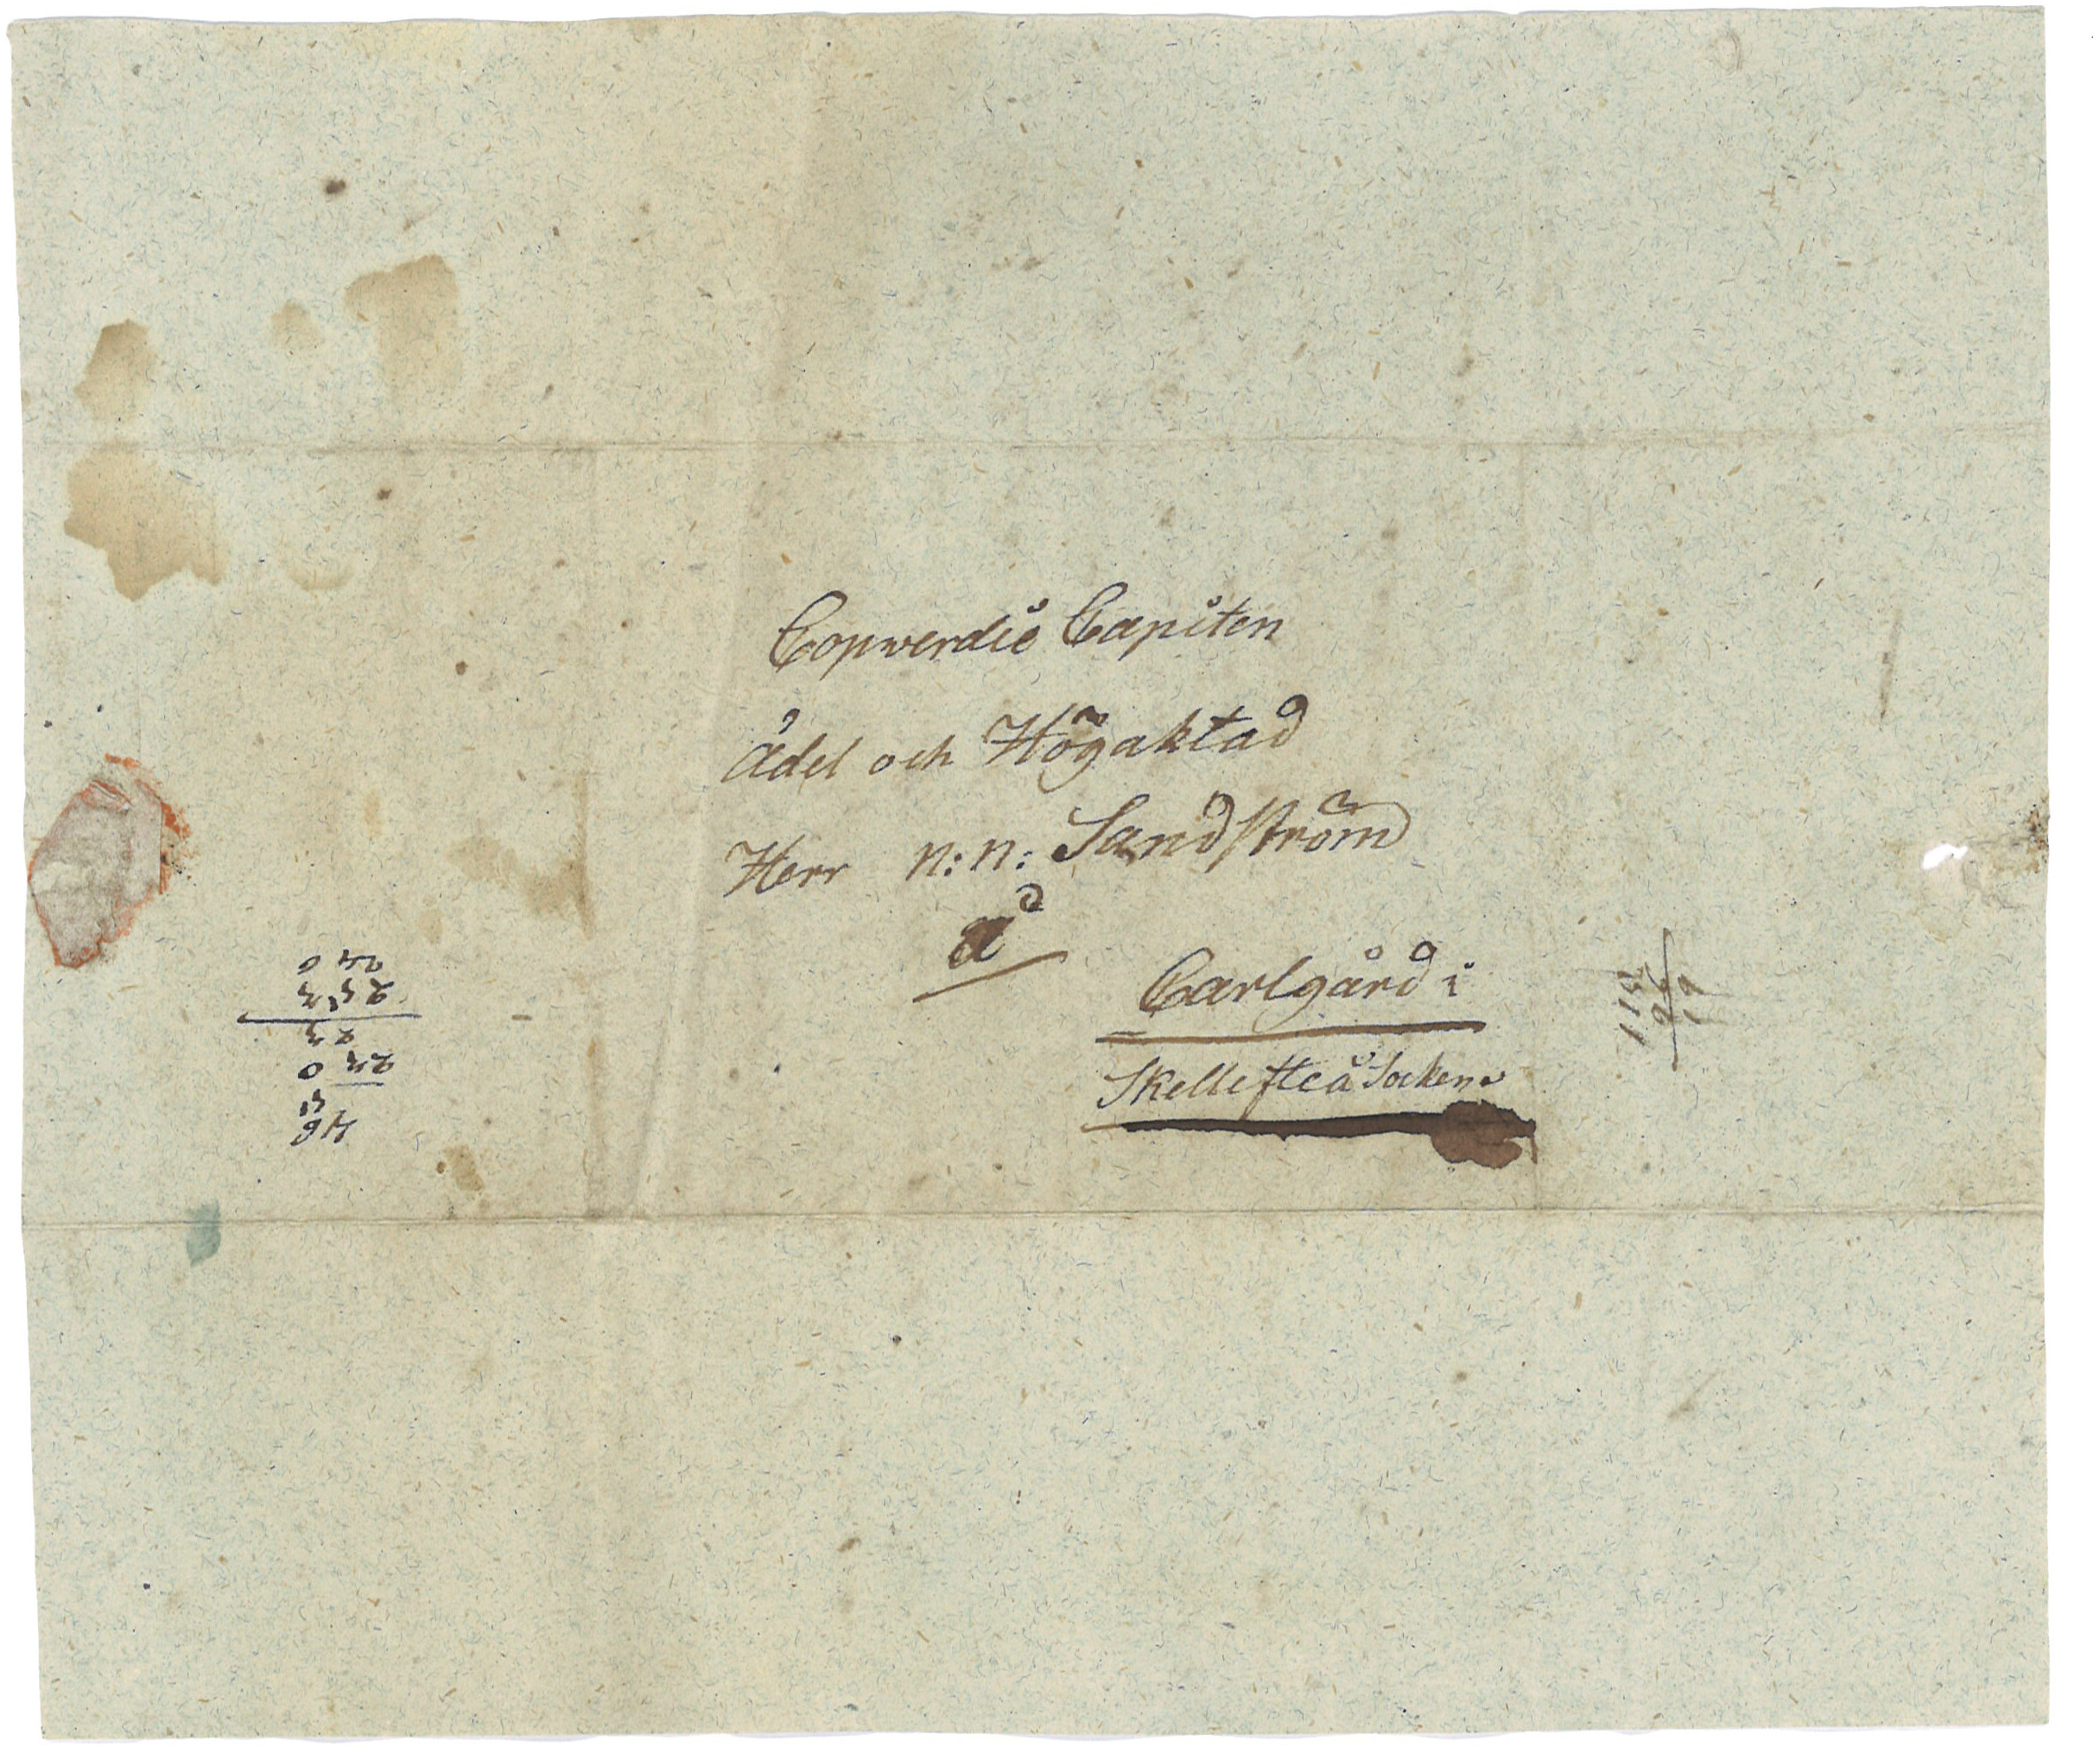 Copwerdie Capiten
Ädel och Högaktad
Herr n: n: Sandström
å
Carlgård i
Skellefteå Socken